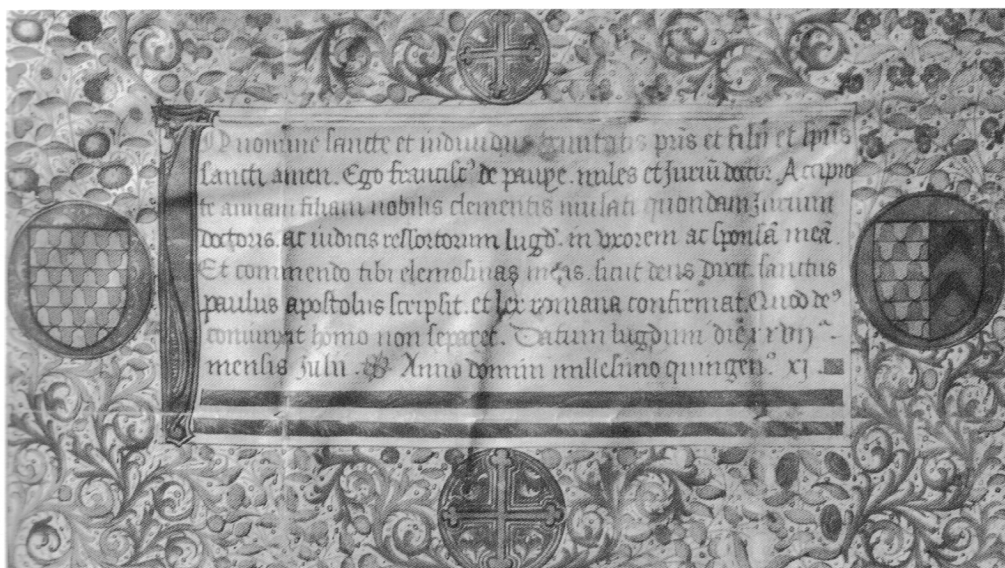 In nomine sancte et individue trinitatis pris et filii et spūs
sancti amen. Ego francisc⁹ de pavye. miles et Juriū doctor. Accipio
te annam filiam nobilis clementis mulati quondam Jurium
doctoris. ac iudicis ressortorum lugd. in uxorem ac sponsā meā.
Et commendo tibi elemosinas meas. sicut deus dixit. sanctus
paulus apostolus scripsit. et lex romana confirmat. Quod de⁹
coniunxit homo non separet. Datum lugduni die xxvii ᵃ
mensis Julii. Anno domini millesimo quingen.ᵒ xj